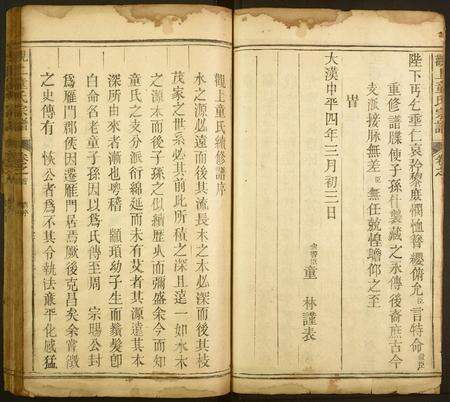 觀上童氏宗譜
卷之
陛下丐乞垂仁哀矜黎庶憫恤簪纓俯允臣言特命儀臣
重修譜牒使子孫什襲藏之永傳後裔庶古今
支派接脉無差臣無任兢惶瞻仰之至
旹
大漢中平四年三月初三日
童林謹表
觀上童氏續修譜序
水之源必遠而後其流長木之本必深而後其枝
茂家之世系必其前此所積之深且遠一如水木
之源本而後子孫之似續歷久而彌盛余今而知
童氏之支分派衍綿延而未有艾者其源遠其本
深所由來者漸也粤稽顓頊幼子生而鬚髮卽
白命名老童子孫因以爲氏傳至周宗賜公封
爲雁門郡侯因遷雁門居焉厥後克昌矣余嘗徵
之史傳有恢公者爲不其令執法廉平化感猛
觀上童氏宗譜
卷之